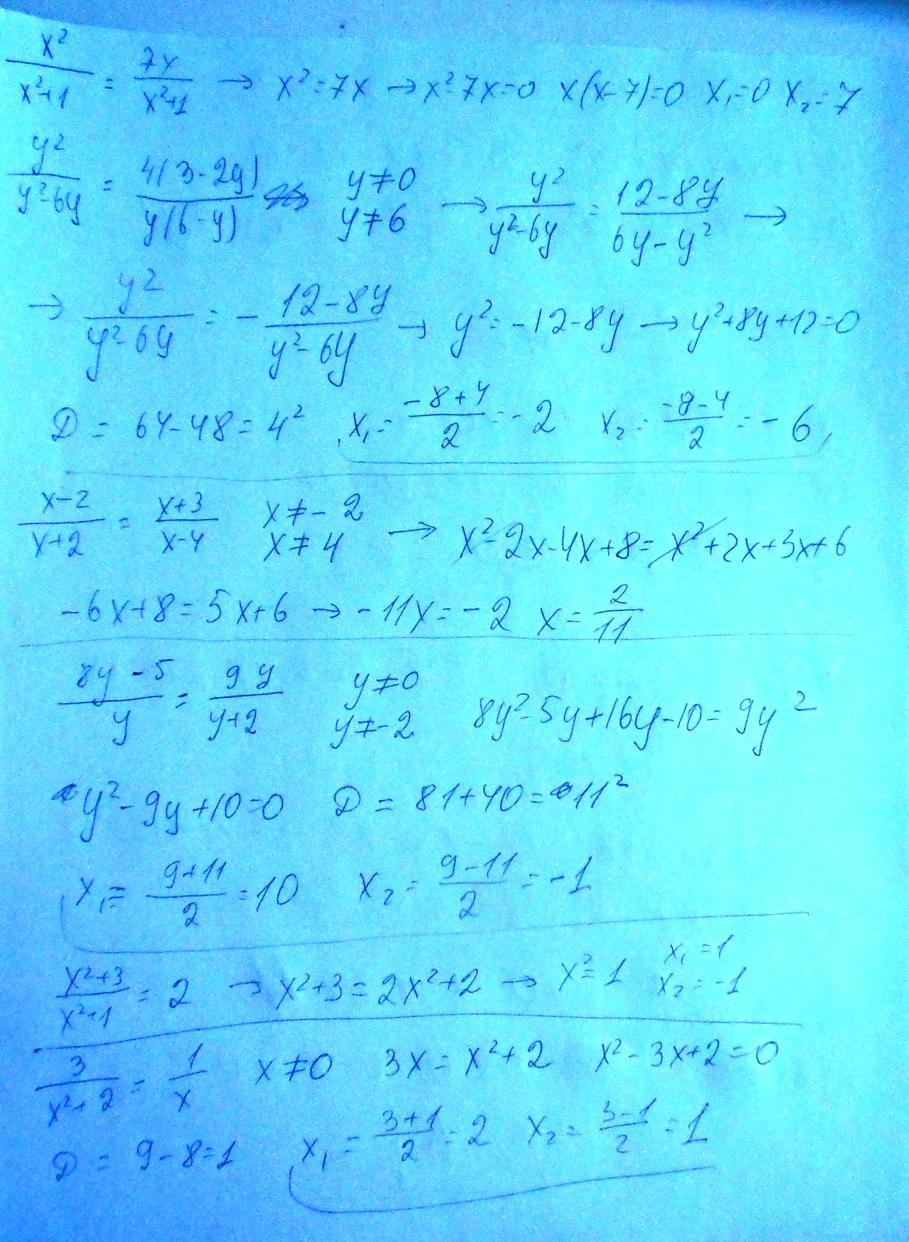 x²/(x²+1) = 7x/(x²+1) → x²=7x → x²-7x=0 x(x-7)=0 x₁=0 x₂=7
y²/(y²-6y) = 4(3-2y)/(y(6-y)) y≠0 y≠6 → y²/(y²-6y) = (12-8y)/(6y-y²) →
→ y²/(y²-6y) = -(12-8y)/(y²-6y) → y²=-12-8y → y²+8y+12=0
D = 64-48=4² x₁=(-8+4)/2=-2 x₂=(-8-4)/2=-6
(x-2)/(x+2) = (x+3)/(x-4) x≠-2 x≠4 → x²-2x-4x+8=x²+2x+3x+6
-6x+8=5x+6 → -11x=-2 x=2/11
(8y-5)/y = 9y/(y+2) y≠0 y≠-2 8y²-5y+16y-10=9y²
y²-9y+10=0 D = 81+40=11²
x₁=(9+11)/2=10 x₂=(9-11)/2=-1
(x²+3)/(x²+1)=2 → x²+3=2x²+2 → x²=1 x₁=1 x₂=-1
3/(x²+2) = 1/x x≠0 3x=x²+2 x²-3x+2=0
D = 9-8=1 x₁=(3+1)/2=2 x₂=(3-1)/2=1